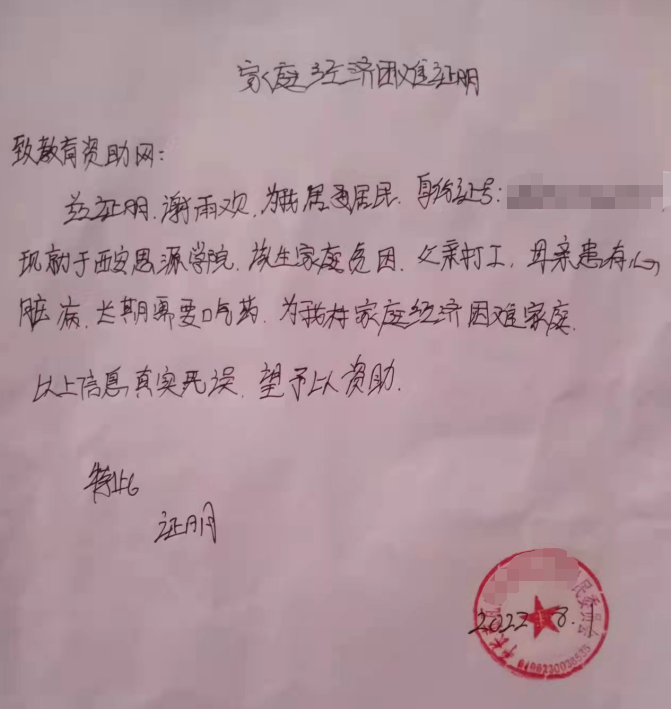 家庭经济困难证明
致教育资助网:
兹证明,谢雨欢,为我居委居民.身份证号:
现就于西安思源学院,该生家庭贫困.父亲打工,母亲患有心
脏病,长期需要吃药.为我村家庭经济困难家庭.
以上信息真实无误,望予以资助.
特此
证明
民委员会
2022.8.1